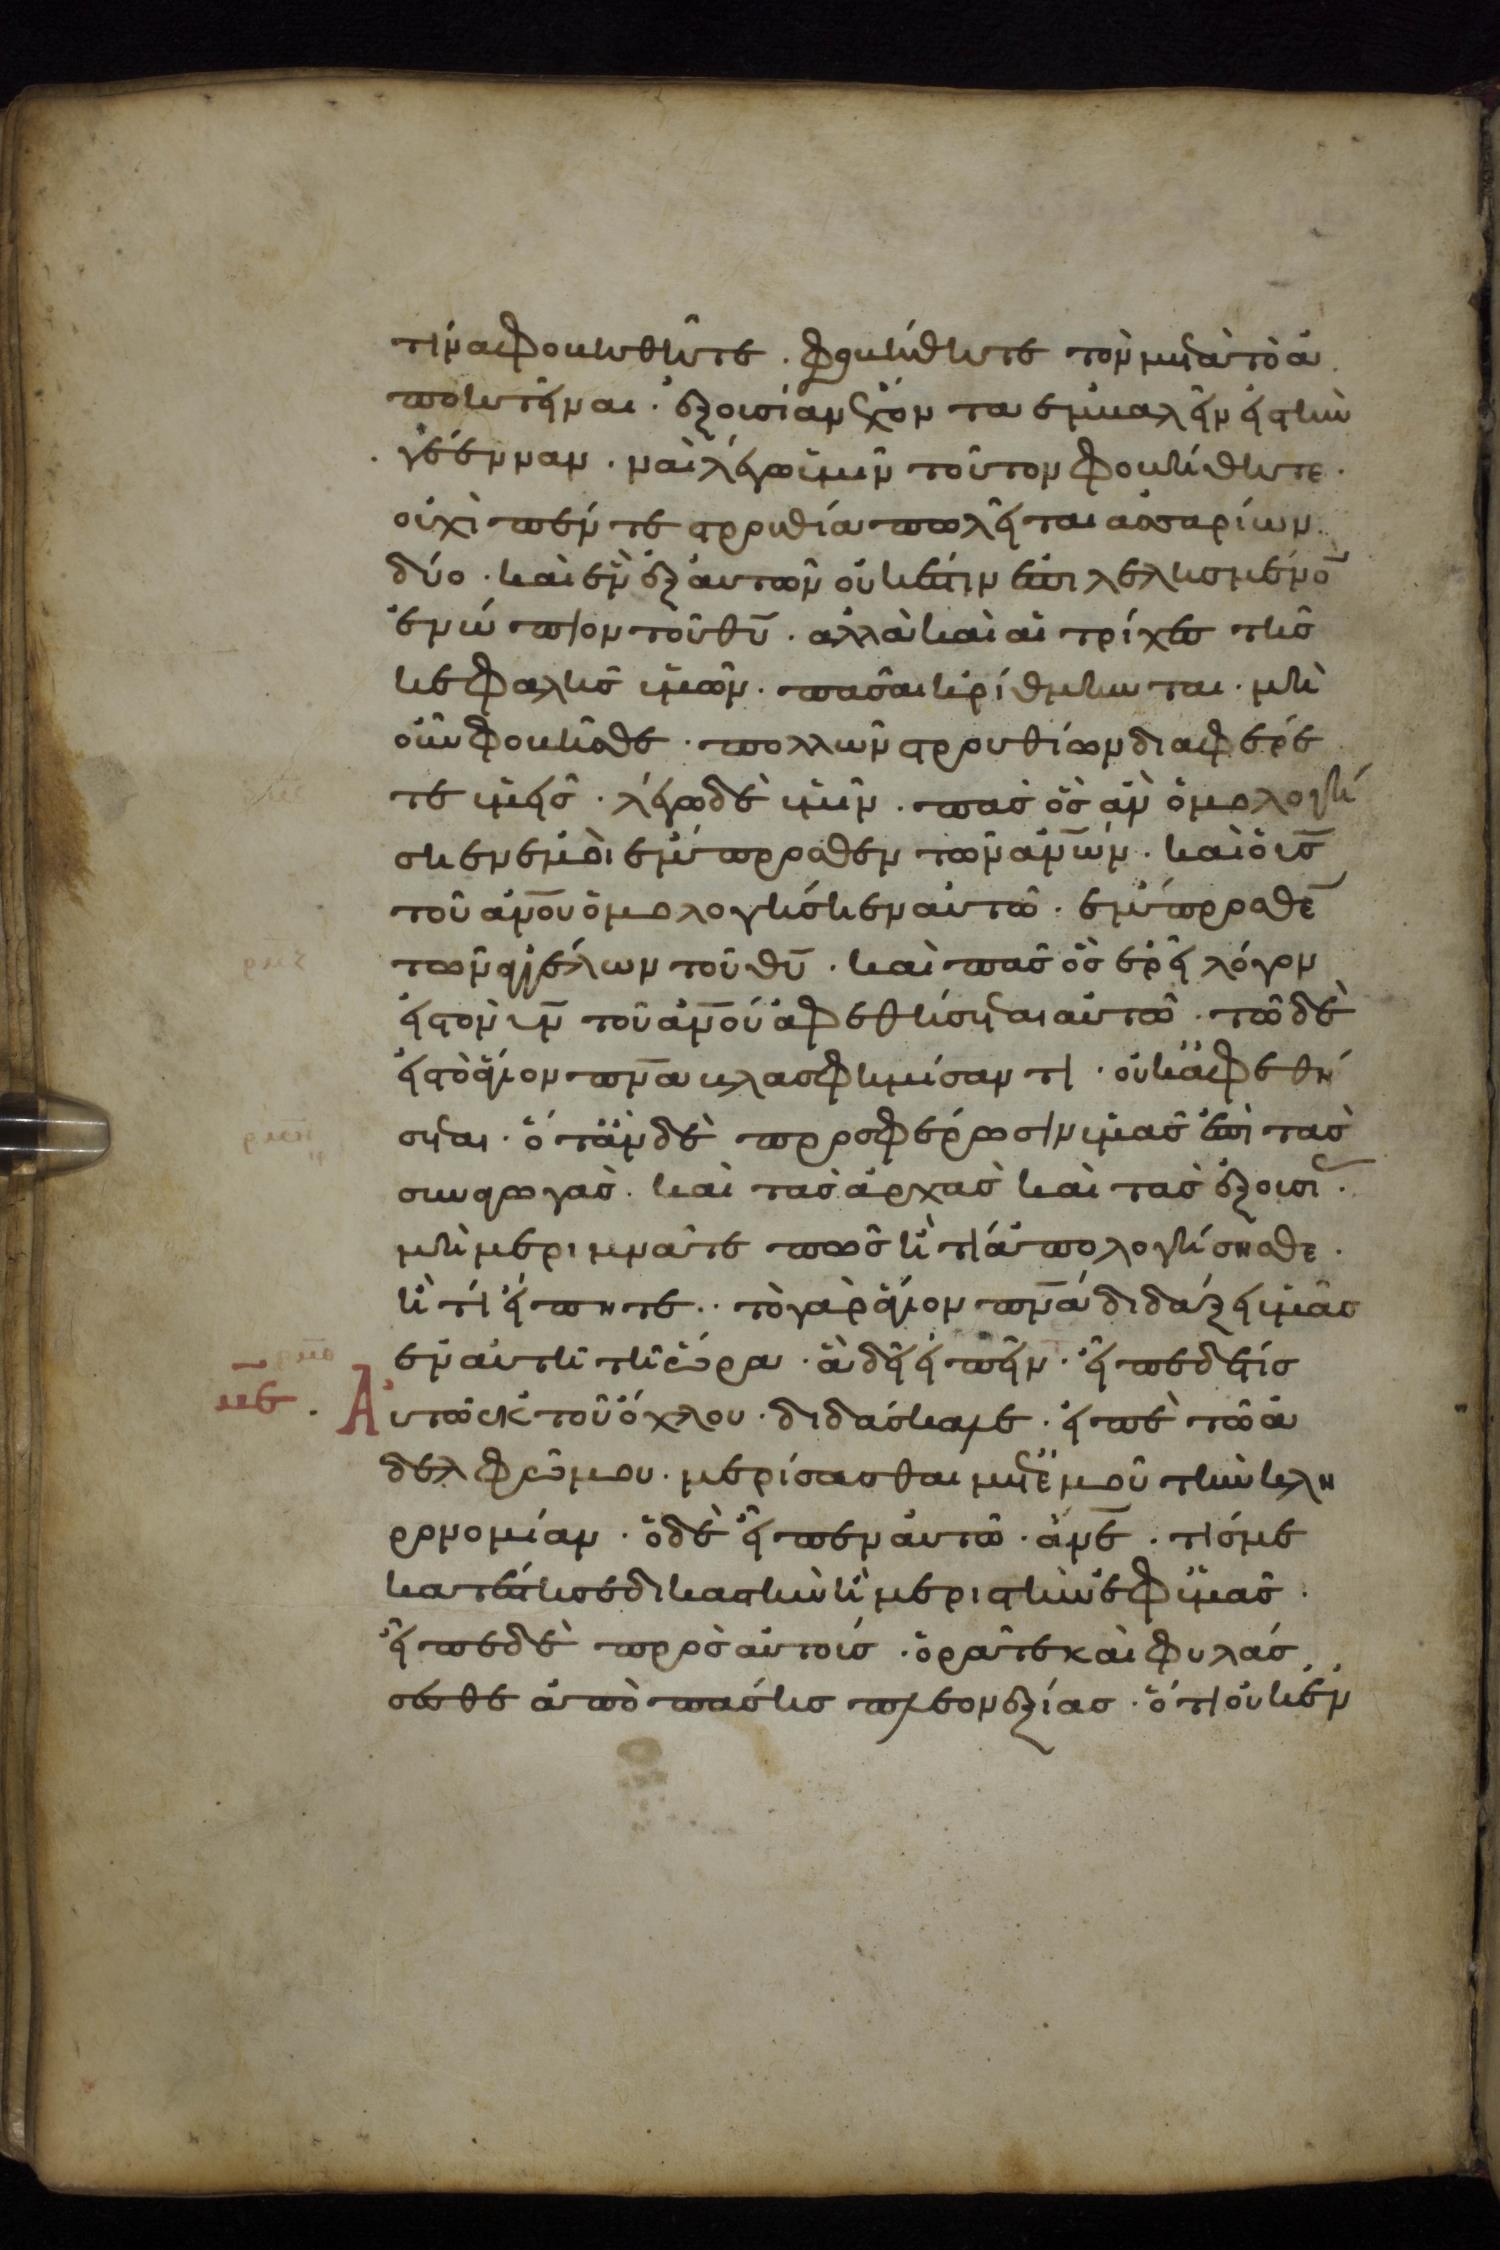 τίνα φοβηθῆτε. φοβήθητε τὸν μετὰ τὸ ἀ
ποκτεῖναι. ἐξουσίαν ἔχοντα ἐμβαλεῖν εἰς τὴν
γέενναν. ναὶ λέγω ὑμῖν τοῦτον φοβήθητε.
οὐχὶ πέντε στρουθία πωλεῖται ἀσσαρίων
δύο. καὶ ἓν ἐξ αὐτῶν οὐκ ἔστιν ἐπιλελησμένο̅
ἐνώπιον τοῦ θυ̅. ἀλλὰ καὶ αἱ τρίχες τῆς
κεφαλῆς ὑμῶν. πᾶσαι ἠρίθμηνται. μὴ
οὖν φοβῆσθε. πολλῶν στρουθίων διαφέρε
τε ὑμεῖς. λέγω δὲ ὑμῖν. πᾶς ὃς ἂν ὁμολογή
ση ἐν ἐμοὶ ἔμπροσθεν τῶν αν̅ων. καὶ ὁ υς̅
τοῦ αν̅ου ὁμολογήσει ἐν αὐτῶ. ἔμπροσθε̅
τῶν ἀγγέλων τοῦ θυ̅. καὶ πᾶς ὃς ἐρεῖ λόγον
εἰς τὸν υν̅ τοῦ αν̅ου ἀφεθήσεται αὐτῶ. τῶ δὲ
εἰς τὸ ἅγιον πν̅α βλασφημήσαντι. οὐκ ἀφεθή
σεται. ὅταν δὲ προσφέρωσιν ὑμᾶς ἐπὶ τὰς
συναγωγὰς. καὶ τὰς ἀρχὰς καὶ τὰς ἐξουσι.
μὴ μεριμνᾶτε πῶς ἢ τί ἀπολογήσησθε.
ἢ τί εἴπητε. τὸ γὰρ ἅγιον πν̅α διδάξει ὑμᾶς
ἐν αὐτῆ τῆ ὥρα. ἃ δεῖ εἰπεῖν. εἶπε δέ τις
νε̅. Αὐτῶ ἐκ τοῦ ὄχλου. διδάσκαλε. εἰπὲ τῶ ἀ
δελφῶ μου. μερίσασθαι μετ ἐμοῦ τὴν κλη
ρονομίαν. ὁ δὲ εἶπεν αὐτῶ. αν̅ε. τίς με
κατέστησε δικαστὴν ἢ μεριστὴν ἐφ ὑμᾶς.
εἶπε δὲ πρὸς αὐτούς. ὁρᾶτε καὶ φυλάσ
σεσθε ἀπὸ πάσης πλεονεξίας. ὅτι οὐκ ἐν